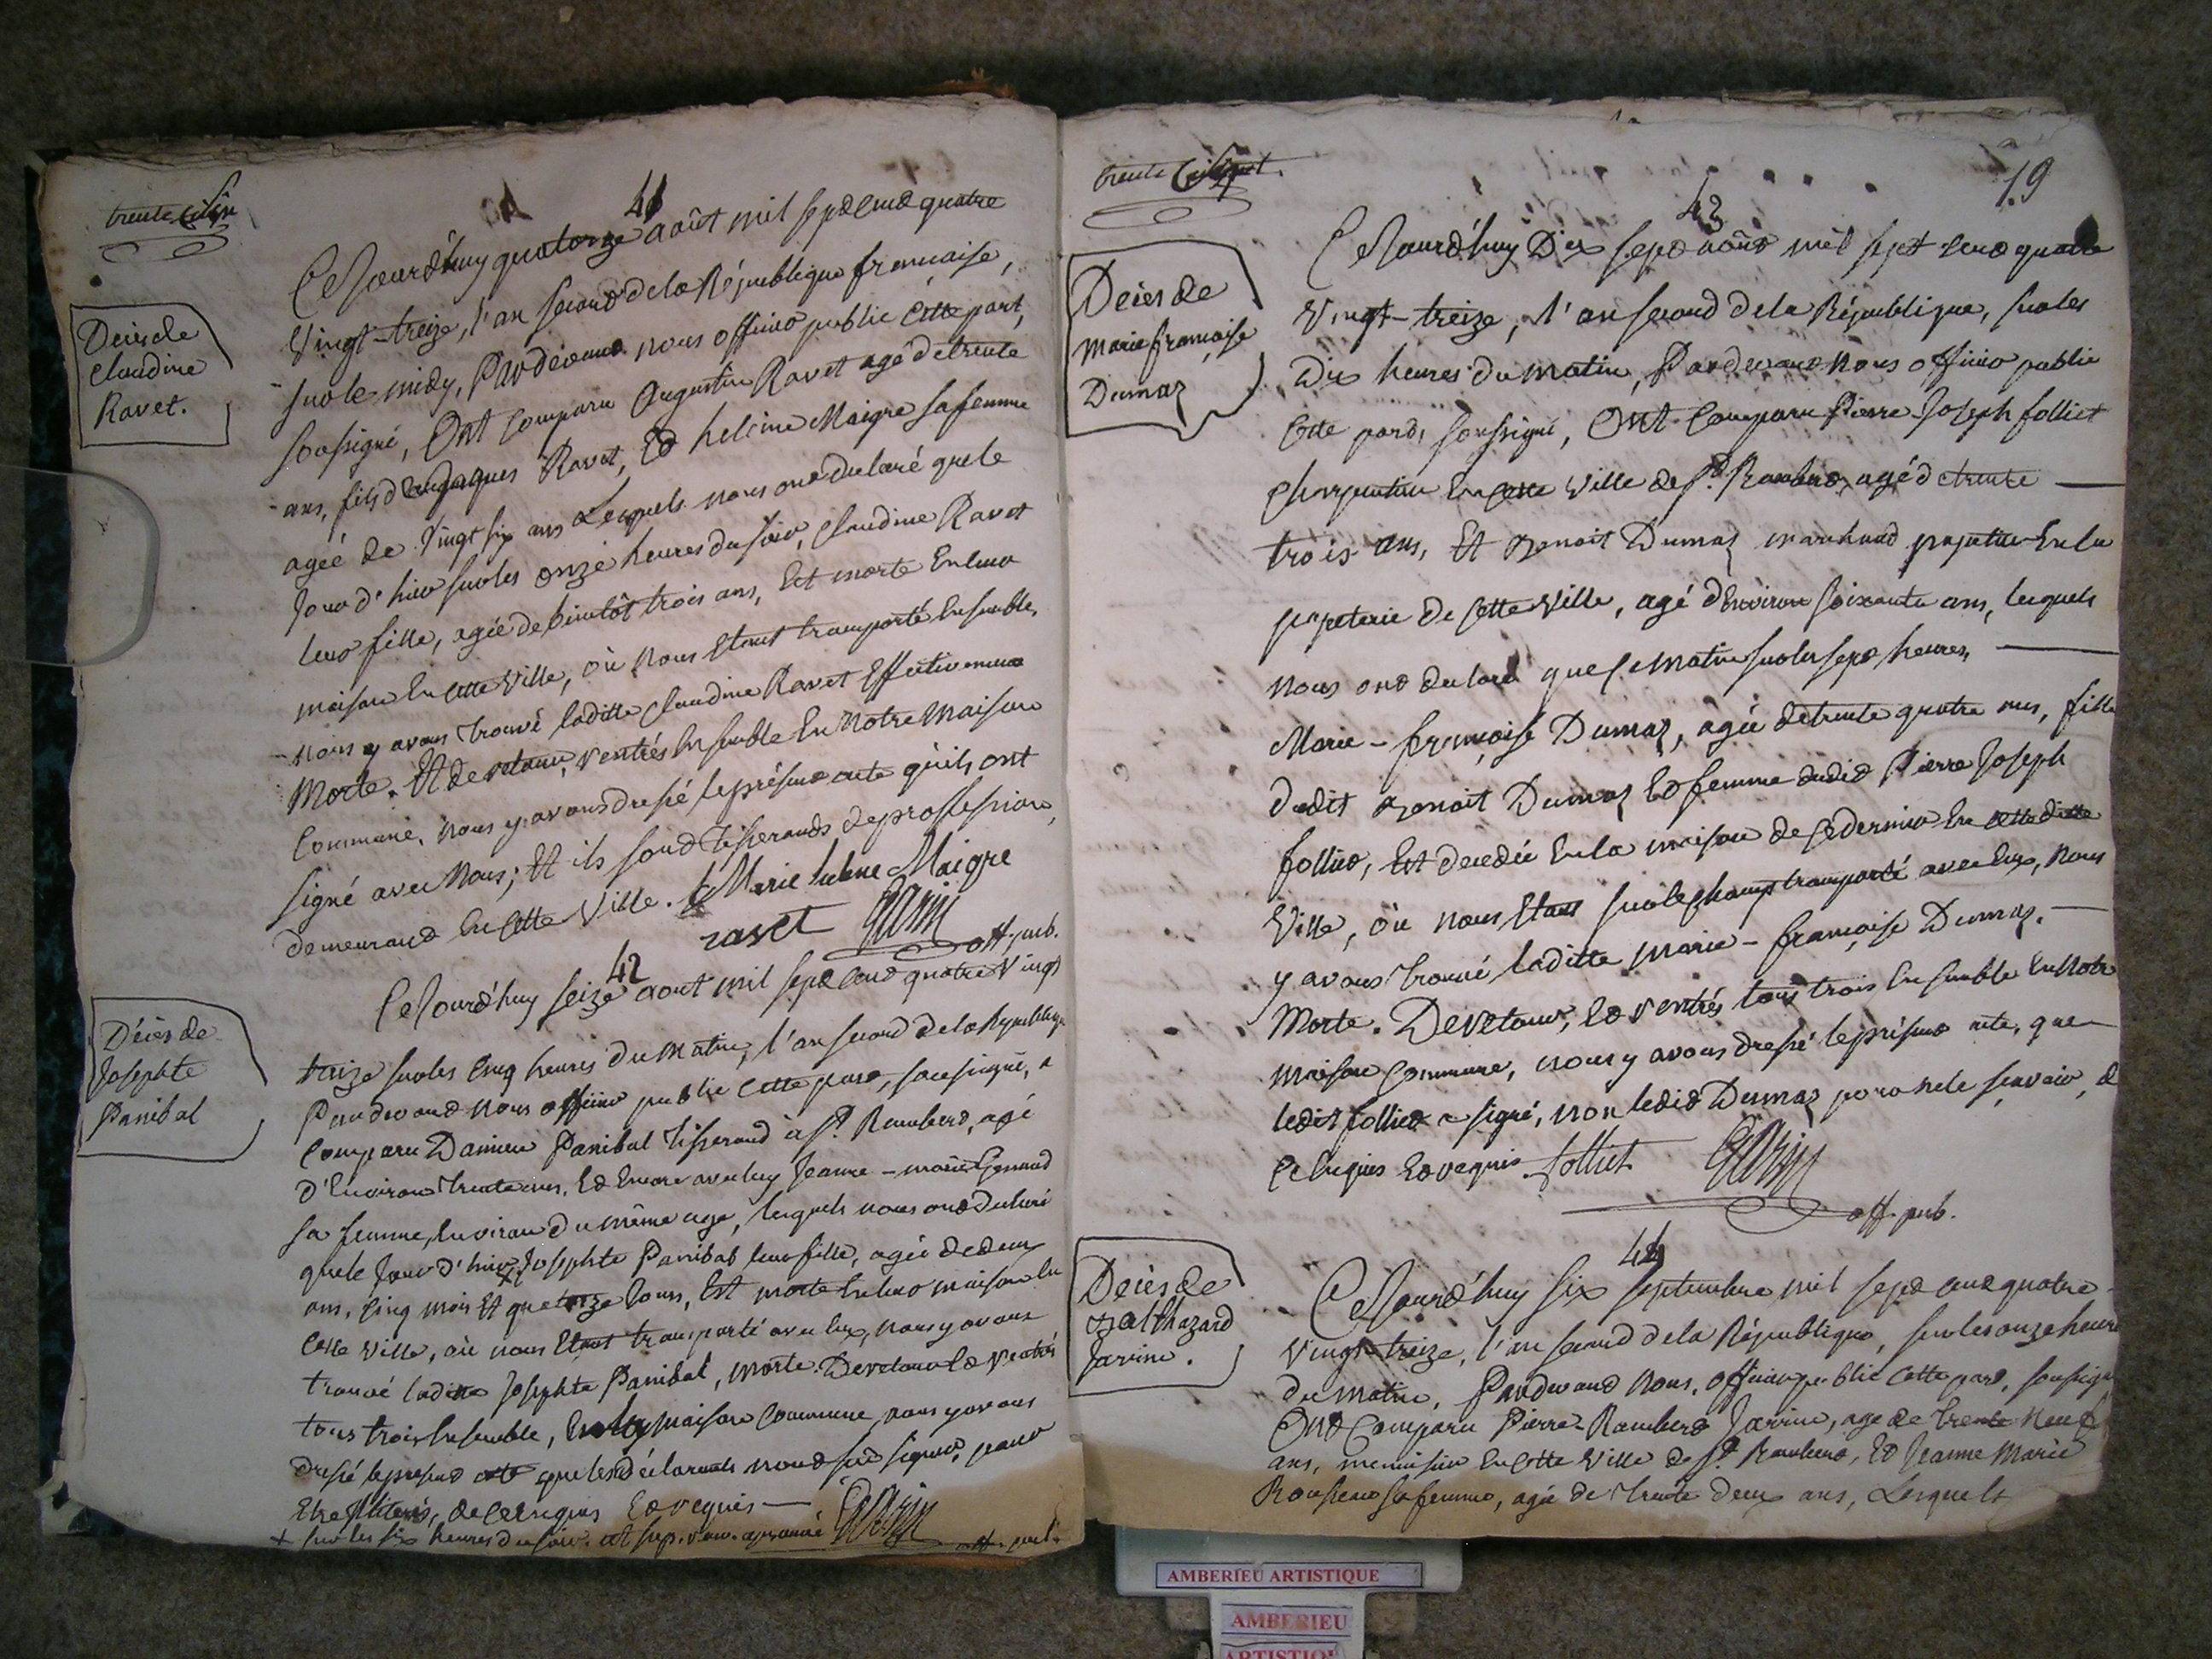 trente six
41
Décès de
Claudine
Ravet.
Cejourd'huy quatorze août mil sept cent quatre
vingt-treize, l'an second de la République francaise,
sur le midy, Pardevant nous officier public cette part,
soussigné, Ont comparu Augustin Ravet agé de trente
ans, fils d' Ravet, Et heleine Maigre sa femme
agée de vingt six ans Lesquels nous ont declaré que le
jour d'hier sur les onze heures du soir, Claudine Ravet
leur fille, agée de bientôt trois ans, Est morte En leur
maison En cette ville, où nous Etant transporté Ensemble,
nous y avons trouvé laditte Claudine Ravet Effectivement
Morte. Et de retour, rentrés Ensemble En Notre Maison
Commune, nous y avons dressé le présent acte qu'ils ont
signé avec Nous; Et ils sont tisserands de proffession,
demeurant En cette ville. Marie helene Maigre
ravet GARIN off. pub.
42
Décès de
Josephte
Panibal
Cejourd'huy seize aout mil sept cent quatre vingt
treize sur les cinq heures du matin, l'an second de la Republique
Pardevant nous officier public cette part, soussigné, a
comparu Damien Panibal tisserand à St. Rambert, agé
d'Environ trente ans, Et Encore avec luy Jeanne-marie
sa femme, Environ du même age, lesquels nous ont declaré
que le jour d'hier + Josephte Panibal leur fille, agée de deux
ans, cinq mois Et quatorze jours, Est morte En leur maison En
cette ville, où nous Etant transporté avec Eux, nous y avons
trouvé laditte Josephte Panibal, morte. De retour Et rentrés
tous trois Ensemble, En la maison Commune, nous y avons
dressé le present acte que les déclarants n'ont sçu signer, pour
Etre illiterés, de ce Enquis Et requis GARIN
+ sur les six heures du soir. approuvé off. pub.
trente sept.
19
43
Décès de
Marie françoise
Dumaz
Cejourd'huy Dix sept août mil sept cent quatre
Vingt-treize, l'an second de la République, sur les
Dix heures du matin, Pardevant Nous officier public
cette part, soussigné, Ont Comparu Pierre-Joseph folliet
Charpentier En cette ville de St. Rambert, agé de trente
trois ans, Et Benoit Dumaz marchand papetier En la
papeterie de cette ville, agé d'Environ soixante ans, lesquels
nous ont declaré que ce matin sur les sept heures,
Marie-françoise Dumaz, agée de trente quatre ans, fille
dudit Benoit Dumaz Et femme dudit Pierre Joseph
folliet, Est decedée En la maison de ce dernier En cette ditte
Ville, où nous Etant sur le champ transporté avec Eux, nous
y avons trouvé laditte Marie-françoise Dumaz.
Morte. De retour, Et rentrés tous trois Ensemble En Notre
maison Commune, nous y avons dressé le présent acte, que
ledit folliet a signé, non ledit Dumaz pour ne le sçavoir, de
ce Enquis Et requis folliet GARIN
off. pub.
44
Décès de
Balthazard
Javine.
Cejourd'huy six septembre mil sept cent quatre
Vingt-treize, l'an second de la République, sur les onze heures
du matin, Pardevant Nous, officier public cette part, soussigné
Ont Comparu Pierre-Rambert Javine, agé de trente neuf
ans, menuisier En cette Ville de St. Rambert, Et Jeanne Marie
sa femme, agée de trente deux ans, Lesquels
AMBERIEU ARTISTIQUE
AMBERIEU
ARTISTIQUE